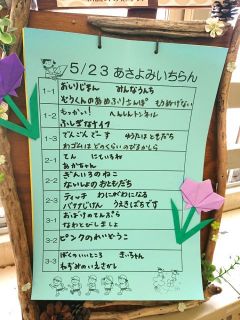 5/23 あさよみいちらん
1-1 おいりじまん みんなうんち
むうくんのあめふりさんぽ もうぬげない
1-2 もっかい! へんしんトンネル
ふしぎなナイフ
1-3 でんごんでーす ゆうたはともだち
わゴムはどのくらいのびるかしら
2-1 てん にもいろね
あかちゃん
2-2 ぎんいろのねこ
ないしょのおともだち
2-3 ティッチ わにがわになる
バナナじけん うえきばちです
3-1 おばけのてんぷら
なわとびしましょ
3-2 ピンクのれいぞうこ
3-3 ぼくのいいところ きいちゃん
ねずみのいえさがし